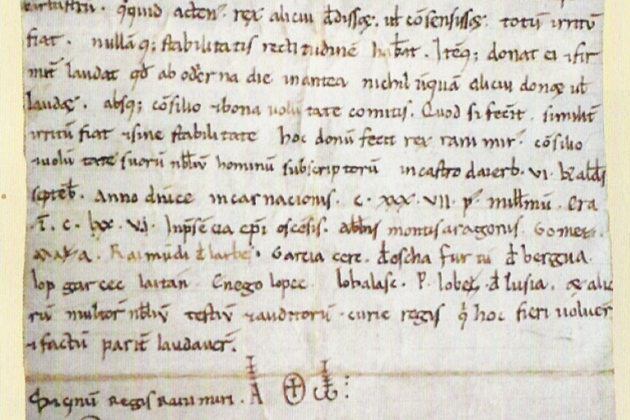 q̄quid acten̄ rex alicui d̄dissꝫ ut̄ cōsensissꝫ totū irritū
fiat. nullāqꝫ stabilitatis rectitudinē hab̄at. Iteqꝫ donat ei ⁊fir
mit̄ laudat qd̄ ab oder na die inantea nichil ūquā alicui donꝫ ut̄
laudꝫ. absqꝫ cōsilio ⁊bona volūtate comitis. Quod si fecit. similit̄
irritū fiat ⁊sine stabilitate hoc donū fecit rex ranimir. cōsilio
⁊volūtate suorū nbliū hominū subscriptorū incastro VI.
septeb̄. Anno divice incarnacionis. c. xxx. VII. p̄ mill̄mū. Era
T̄. c. lxx. VI. Inp̄sēcia ep̄i oscēsis. abbis montisaragonis. Gomez.
Raimūdi d̄ larbe. Garcia d̄oscha d̄ bergua.
lop garcec Enego lopec. P. lobec. d̄ lusia.
rū multor nbliū testiū ⁊auditorū curie regis q̄ hoc fieri voluer̄
⁊factū parit̄ laudauer̄.
Signū regis ranimiri.